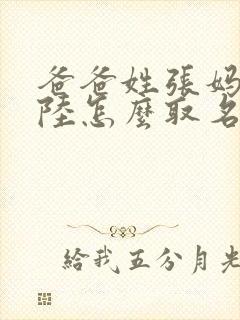 爸爸姓張妈
陸怎麼取名
給我五分月光